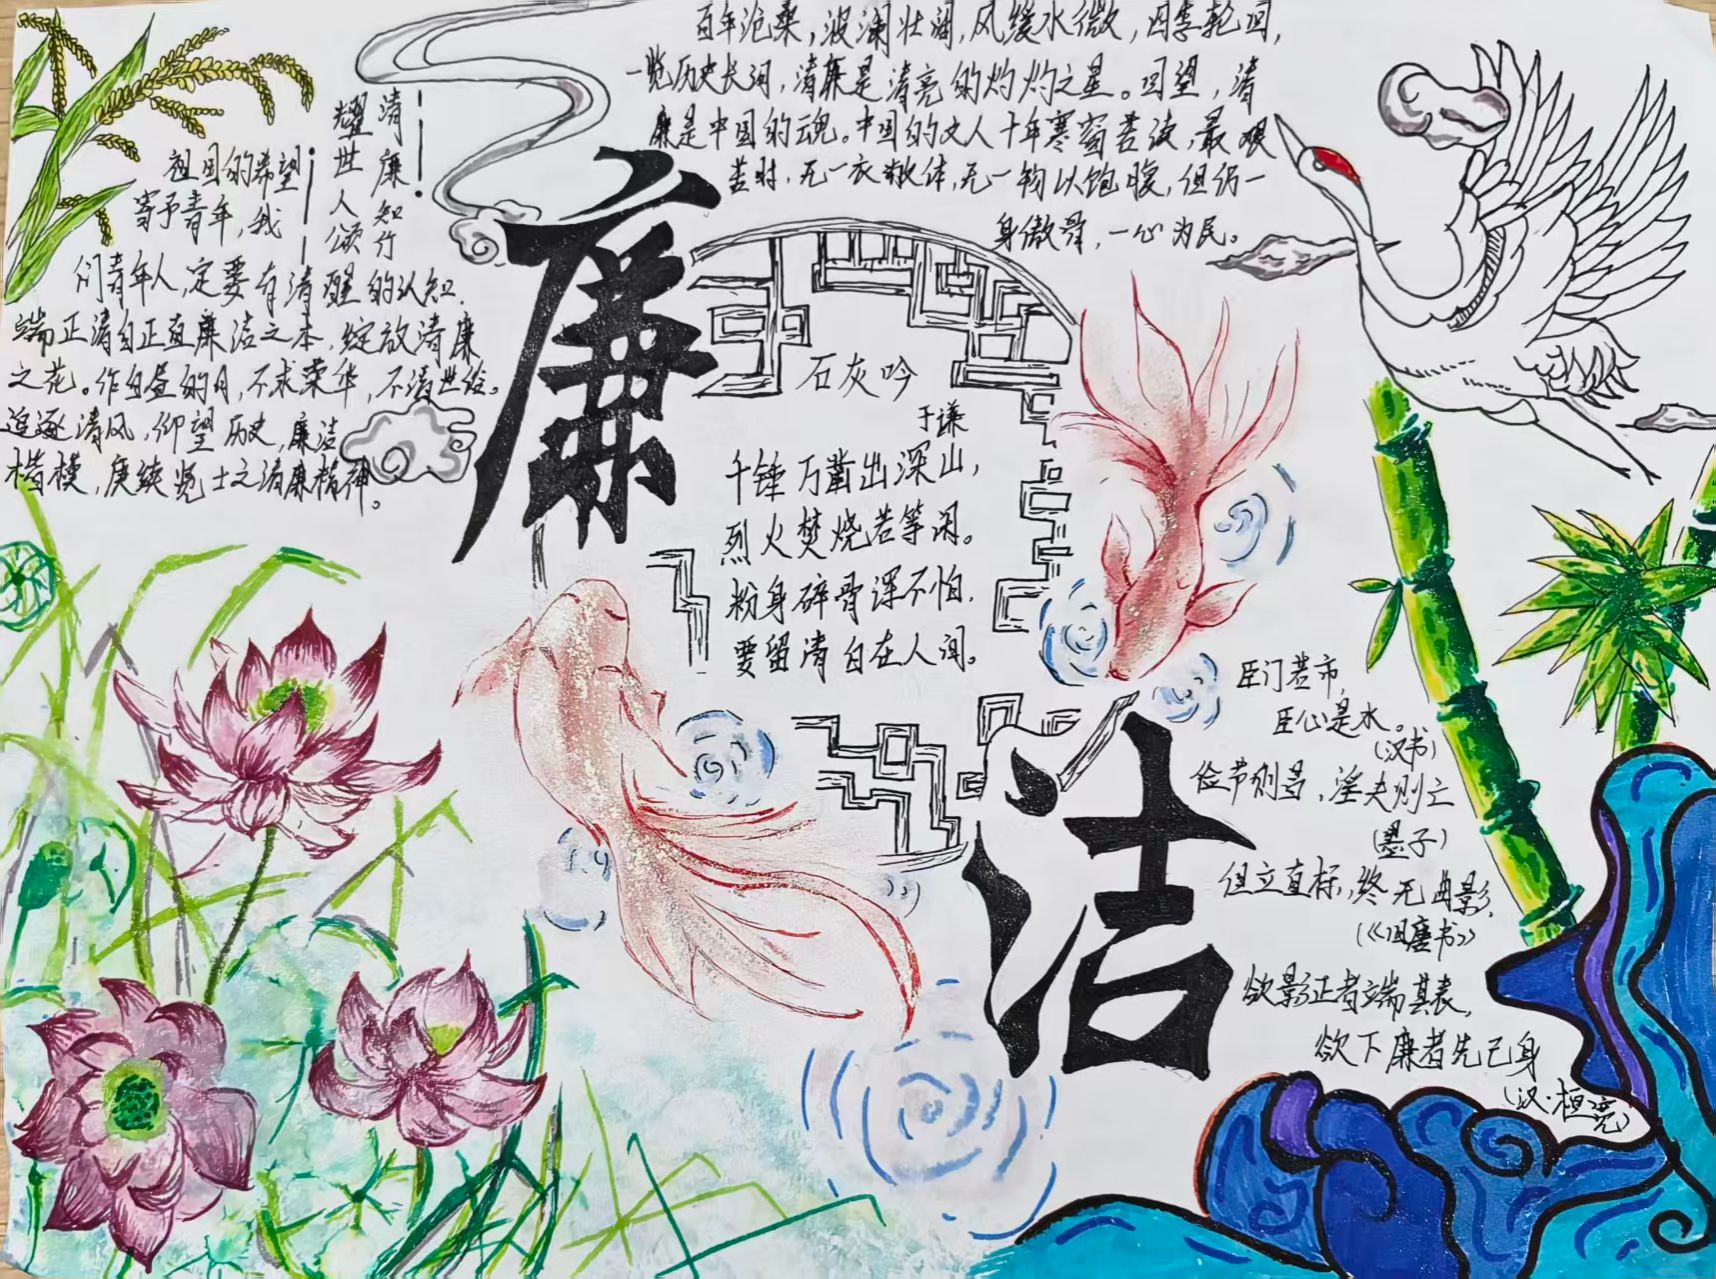 百年沧桑，波澜壮阔，风缓水微，四季轮回，
一览历史长河，清廉是清亮的灼灼之星。回望，清
廉是中国的魂。中国的文人十年寒窗苦读，最艰
苦时，无一衣敝体，无一物以饱腹，但仍一
身傲骨，一心为民。
清廉知行
耀世人颂
祖国的希望
寄予青年，我
们青年人，定要有清醒的认知，
端正清白正直廉洁之本，绽放清廉
之花。作自昼的月，不求荣华，不清世俗。
追逐清风，仰望历史，廉洁
楷模，赓续先士之清廉精神。
廉
石灰吟
于谦
千锤万凿出深山，
烈火焚烧若等闲。
粉身碎骨浑不怕，
要留清白在人间。
洁
臣门若市，
臣心是水。
（汉书）
俭节则昌，淫夫则亡
（墨子）
但立直标，终无曲影，
（《旧唐书》
欲影正者端其表，
欲下廉者先己身
（汉·桓宽）